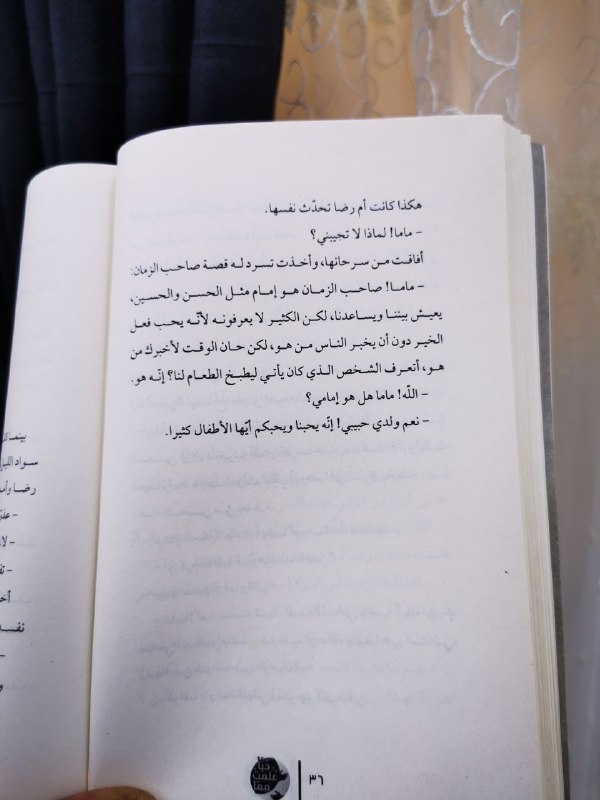 هكذا كانت أم رضا تحدّث نفسها.
- ماما! لماذا لا تجيبني؟
أفاقت من سرحانها، وأخذت تسرد له قصة صاحب الزمان:
- ماما! صاحب الزمان هو إمام مثل الحسن والحسين،
يعيش بيننا ويساعدنا، لكن الكثير لا يعرفونه لأنّه يحب فعل
الخير دون أن يخبر الناس من هو، لكن حان الوقت لأخبرك من
هو، أتعرف الشخص الذي كان يأتي ليطبخ الطعام لنا؟ إنّه هو.
- الله! ماما هل هو إمامي؟
- نعم ولدي حبيبي! إنّه يحبنا ويحبكم أيّها الأطفال كثيرا.
سواد الليل
رضا وأم
٣٦